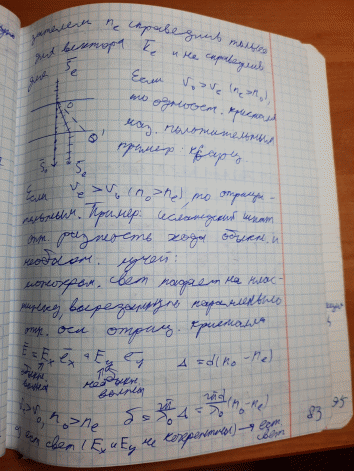 зателем n_e справедлив только
для вектора и не справедлив
для
Если v_o > v_e (n_e > n_o),
то одноосн. кристалл
наз. положительным
пример: кварц
O'
Если v_e > v_o (n_o > n_e), то отрица-
тельным. Пример: исландский шпат
опт. разность хода обыкн. и
необыкн. лучей:
монохром. свет падает на плас-
тинку вырезанную параллельно
опт. оси отриц. кристалла
E = E_x e_x + E_y e_y Δ = d(n_o - n_e)
обыкн. необыкн.
волны волны
v_o, n_o > n_e δ = 2π/λ_0 Δ = 2πd/λ_0 (n_o - n_e)
ест свет (E_x и E_y не когерентны) → ест.
свет
83
95